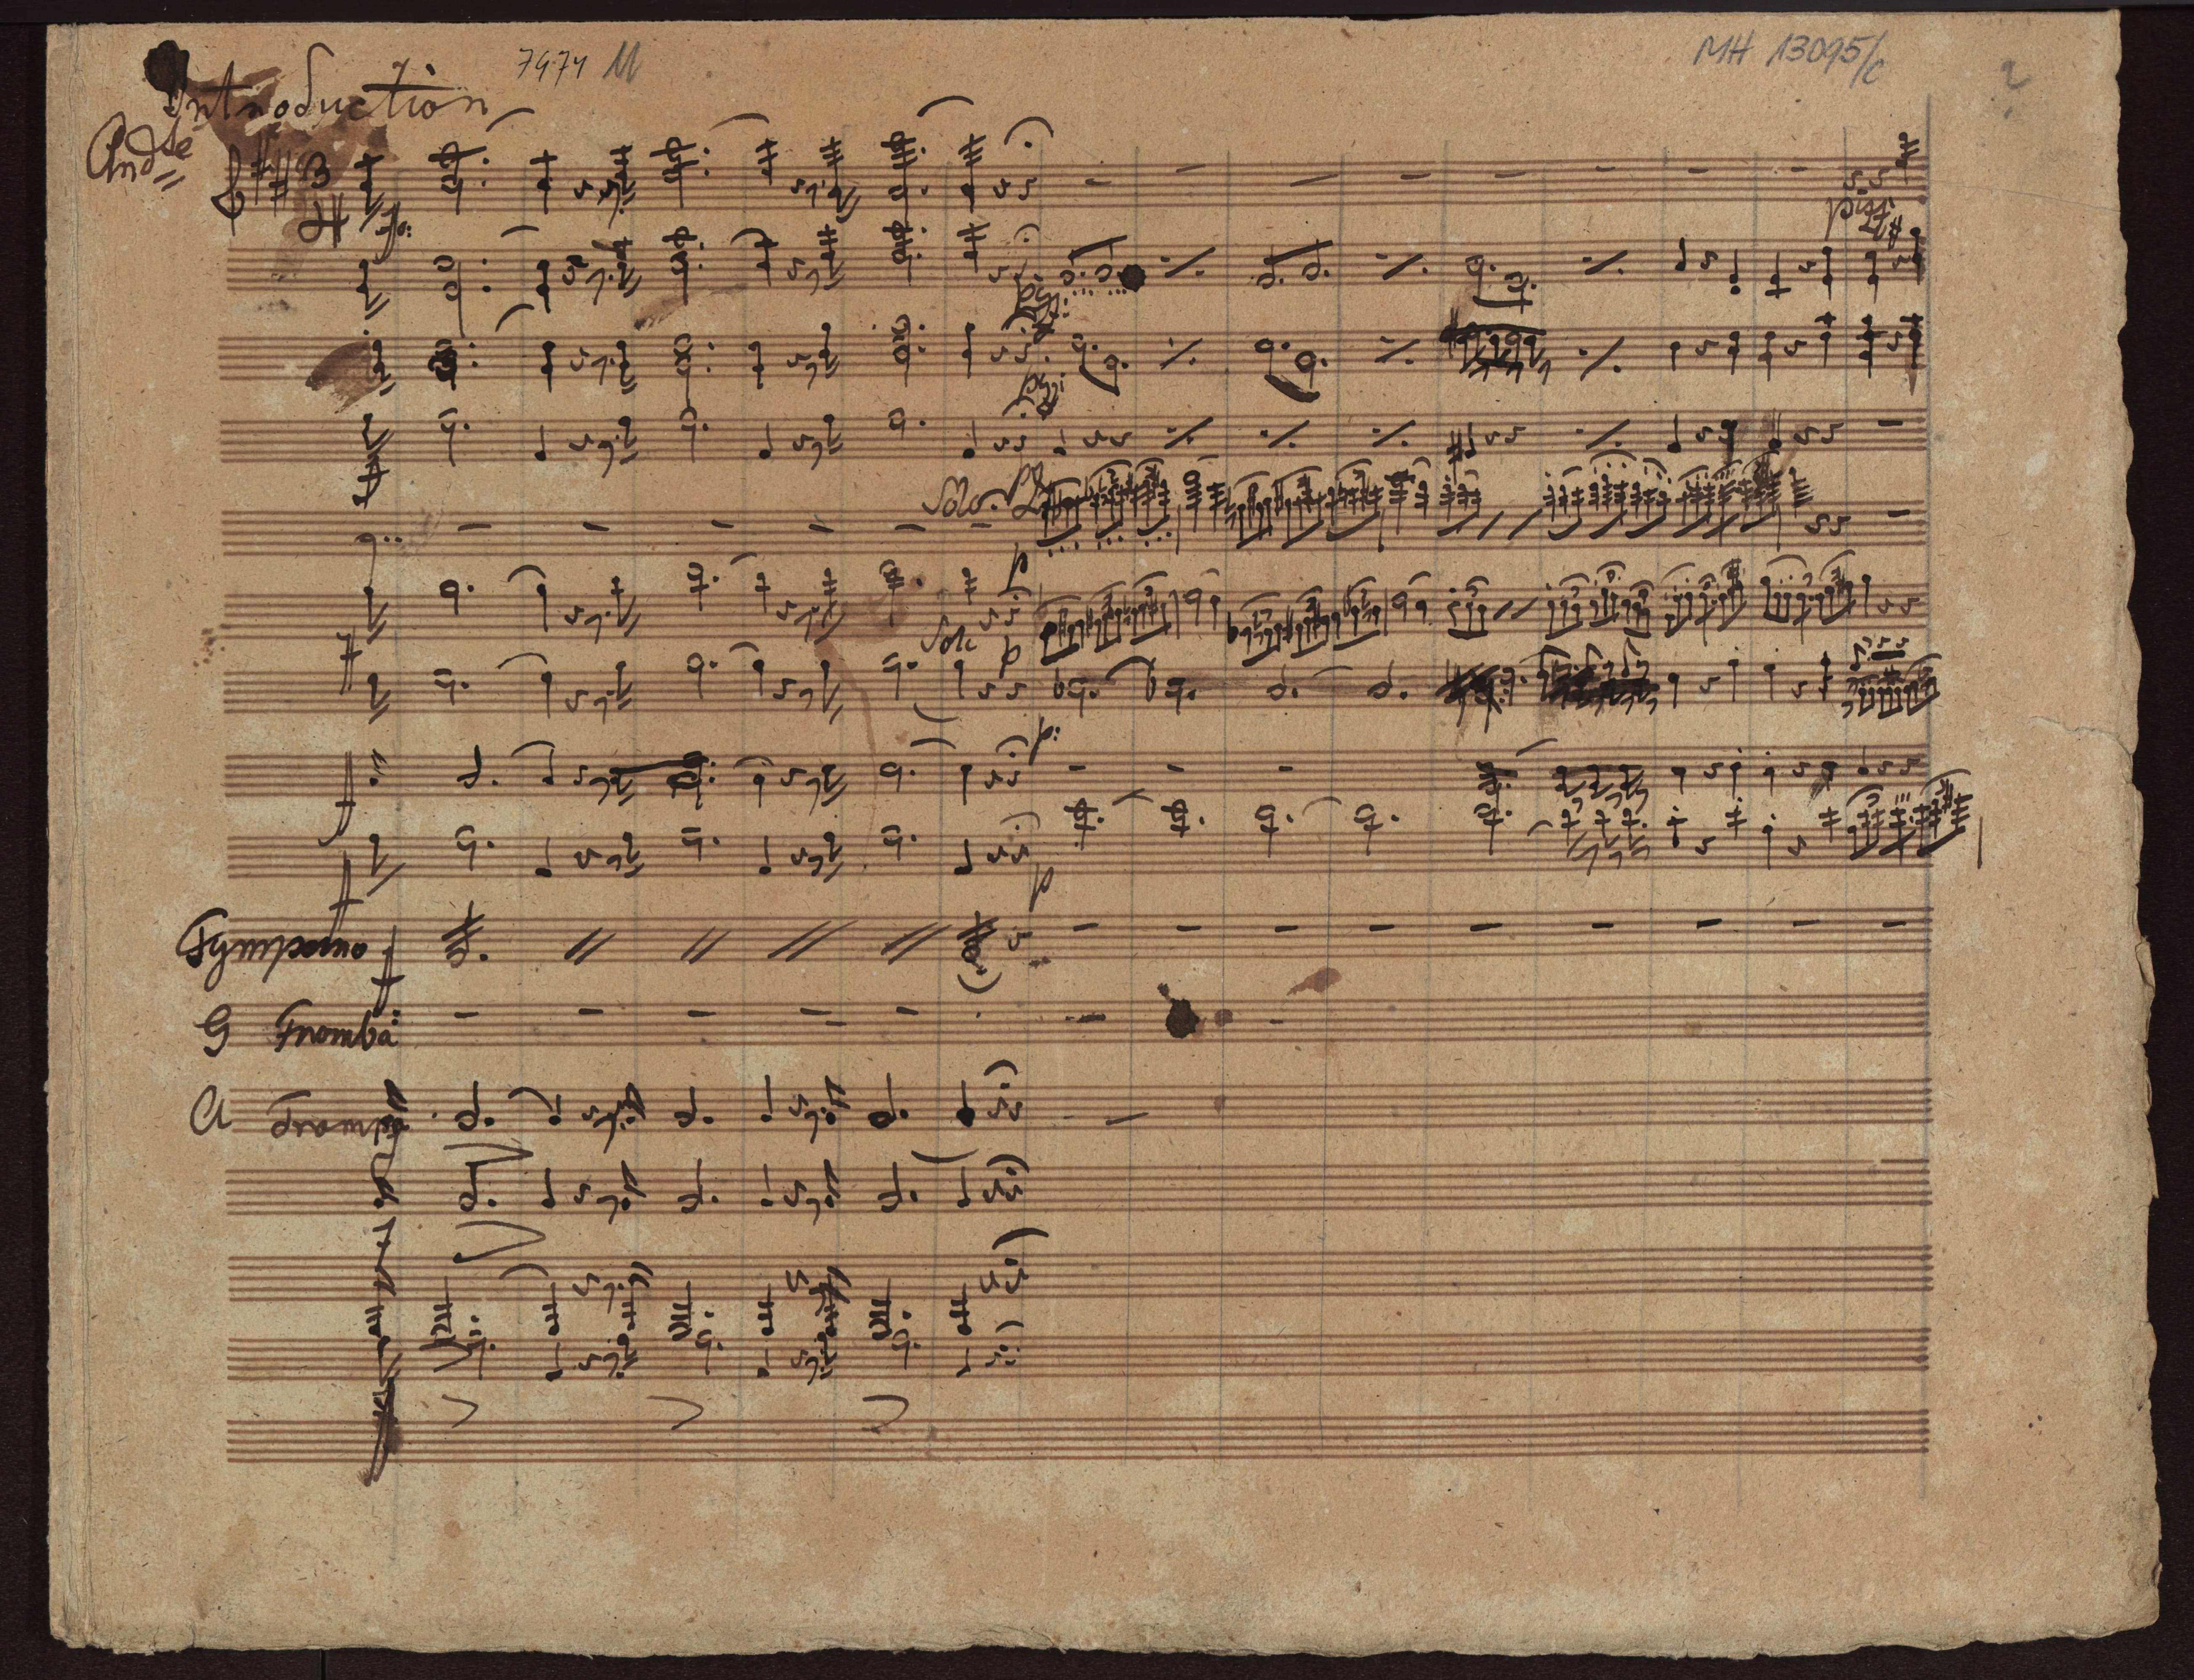 7974 M
MH 13095/c
2
Introduction
Andte
3
4
fo:
pizz:
pizz:
Solo.
p
Solo
p
p:
f
f
f
p
Tympano f
G Tromba
A Tromba